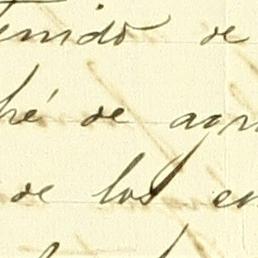 tenido de
hé de agr
de los en